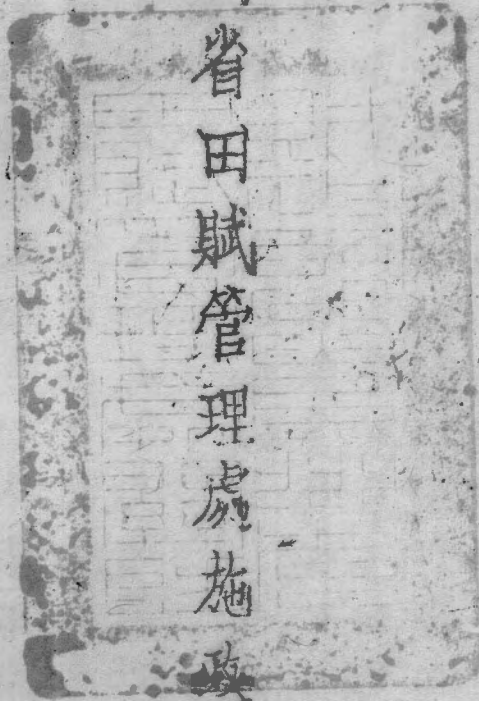 省田賦管理處施政